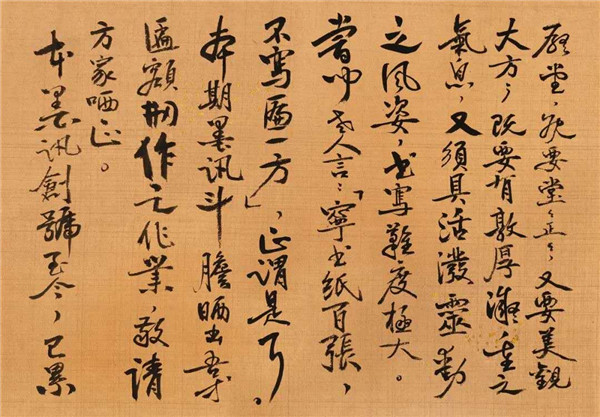 堂,既要堂々正々,又要美觀
大方;既要有敦厚凝重之
氣息,又須具活潑靈動
之風姿,書寫難度極大。
嘗聞老人言:「寧書紙百張,
不寫匾一方」,正謂是。
本期墨訊斗膽晒出吾
匾額作之作業,敬請
方家哂正。
本墨訊創號至今,已累